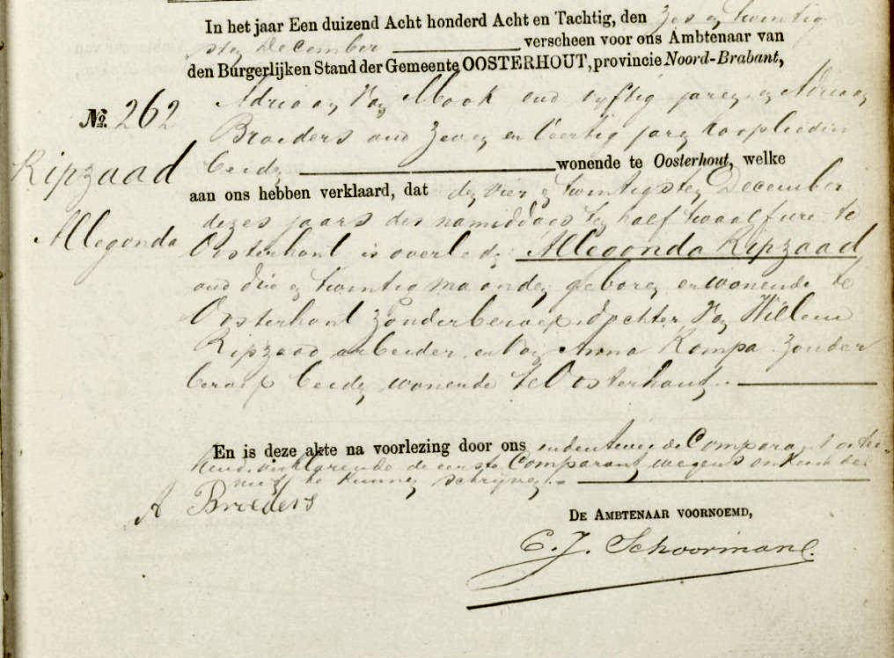 In het jaar Een duizend Acht honderd Acht en Tachtig, den Zes en twintig
sten December verscheen voor ons Ambtenaar van
den Burgerlijken Stand der Gemeente OOSTERHOUT, provincie Noord-Brabant,
No. 262 Adriaan Van Mook oud vyftig jaren, en Adriaan
Broeders oud zeven en veertig jaren kooplieden
Ripzaad beiden wonende te Oosterhout, welke
aan ons hebben verklaard, dat den vier en twintigsten December
dezes jaars des namiddags ten half twaalf ure te
Allegonda Oosterhout is overleden Allegonda Ripzaad
oud drie en twintig maanden geboren en wonende te
Oosterhout zonder beroep, dochter Van Willem
Ripzaad arbeider, en Van Anna Kompa zonder
beroep beiden wonende te Oosterhout.
En is deze akte na voorlezing door ons en den tweede Comparant onderteekend
verklarende de eerste Comparant wegens onkunde
niet te kunnen schrijven.
A Broeders
DE AMBTENAAR VOORNOEMD,
C. J. Schoormans.